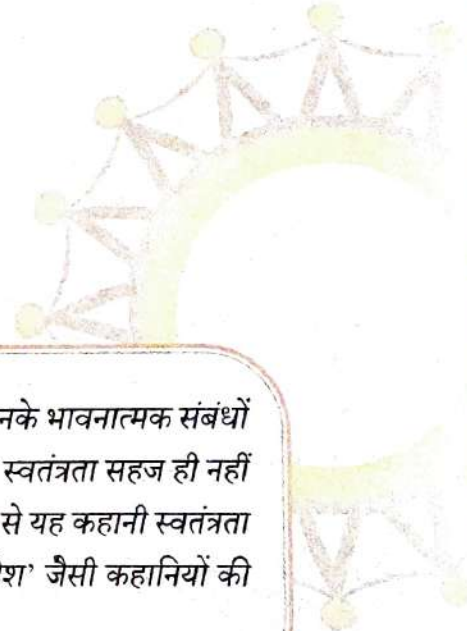 नके भावनात्मक संबंधों
स्वतंत्रता सहज ही नहीं
से यह कहानी स्वतंत्रता
जैसी कहानियों की